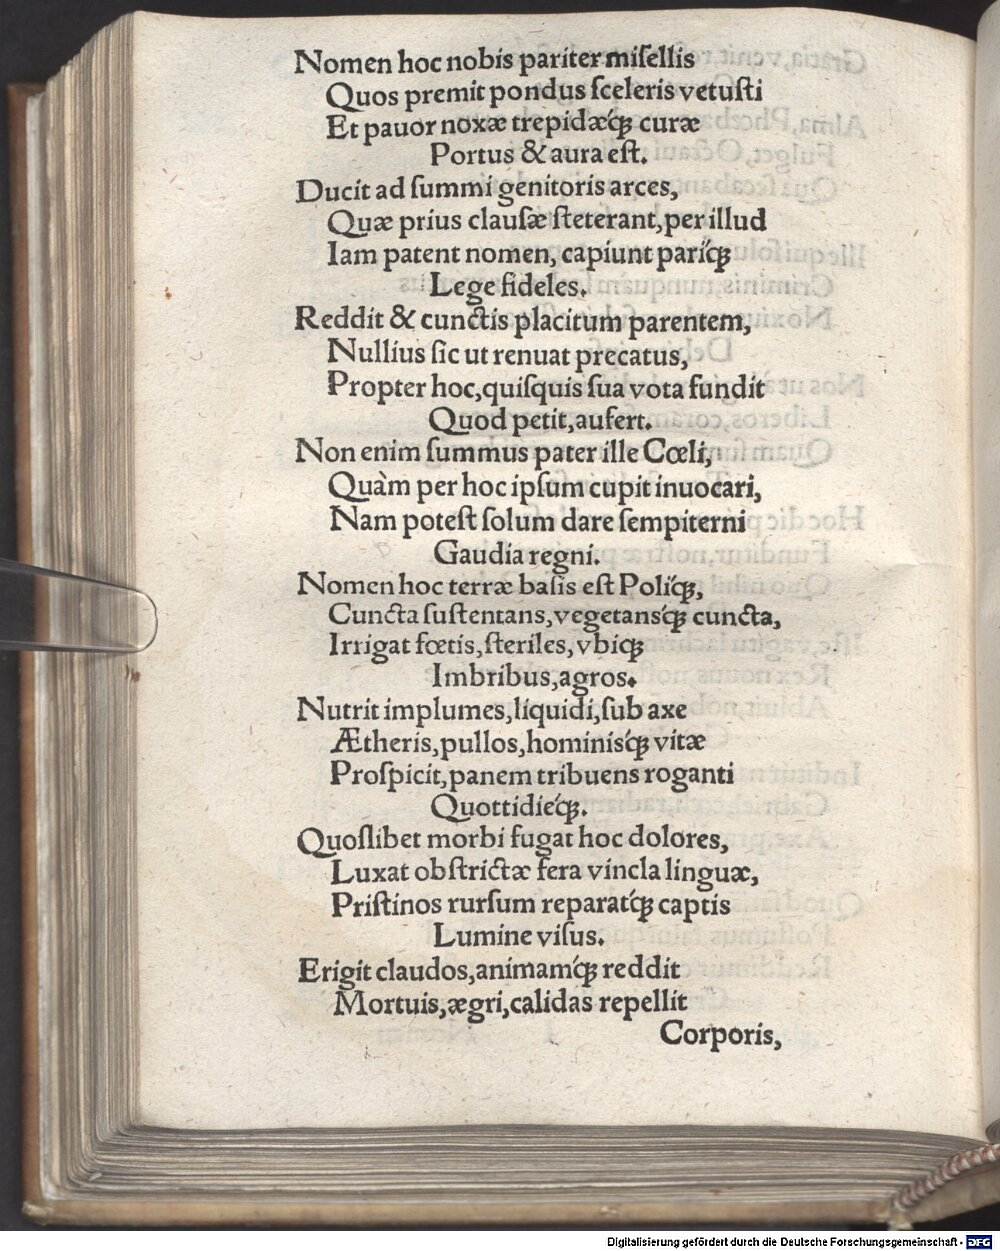 Nomen hoc nobis pariter miſellis
Quos premit pondus ſceleris vetuſti
Et pauor noxæ trepidæq́ꝫ curæ
Portus & aura eſt.
Ducit ad ſummi genitoris arces,
Quæ prius clauſæ ſteterant, per illud
Iam patent nomen, capiunt pariq́ꝫ
Lege fideles.
Reddit & cunctis placitum parentem,
Nullius ſic ut renuat precatus,
Propter hoc, quiſquis ſua vota fundit
Quod petit, aufert.
Non enim ſummus pater ille Cœli,
Quàm per hoc ipſum cupit inuocari,
Nam poteſt ſolum dare ſempiterni
Gaudia regni.
Nomen hoc terræ baſis eſt Poliq́ꝫ,
Cuncta ſuſtentans, vegetansq́ꝫ cuncta,
Irrigat fœtis, ſteriles, vbiq́ꝫ
Imbribus, agros.
Nutrit implumes, liquidi, ſub axe
Ætheris, pullos, hominisq́ꝫ vitæ
Proſpicit, panem tribuens roganti
Quottidieq́ꝫ.
Quoslibet morbi fugat hoc dolores,
Luxat obſtrictæ fera vincla linguæ,
Priſtinos rurſum reparatq́ꝫ captis
Lumine viſus.
Erigit claudos, animamq́ꝫ reddit
Mortuis, ægri, calidas repellit
Corporis,
Digitalisierung gefördert durch die Deutsche Forschungsgemeinschaft - DFG